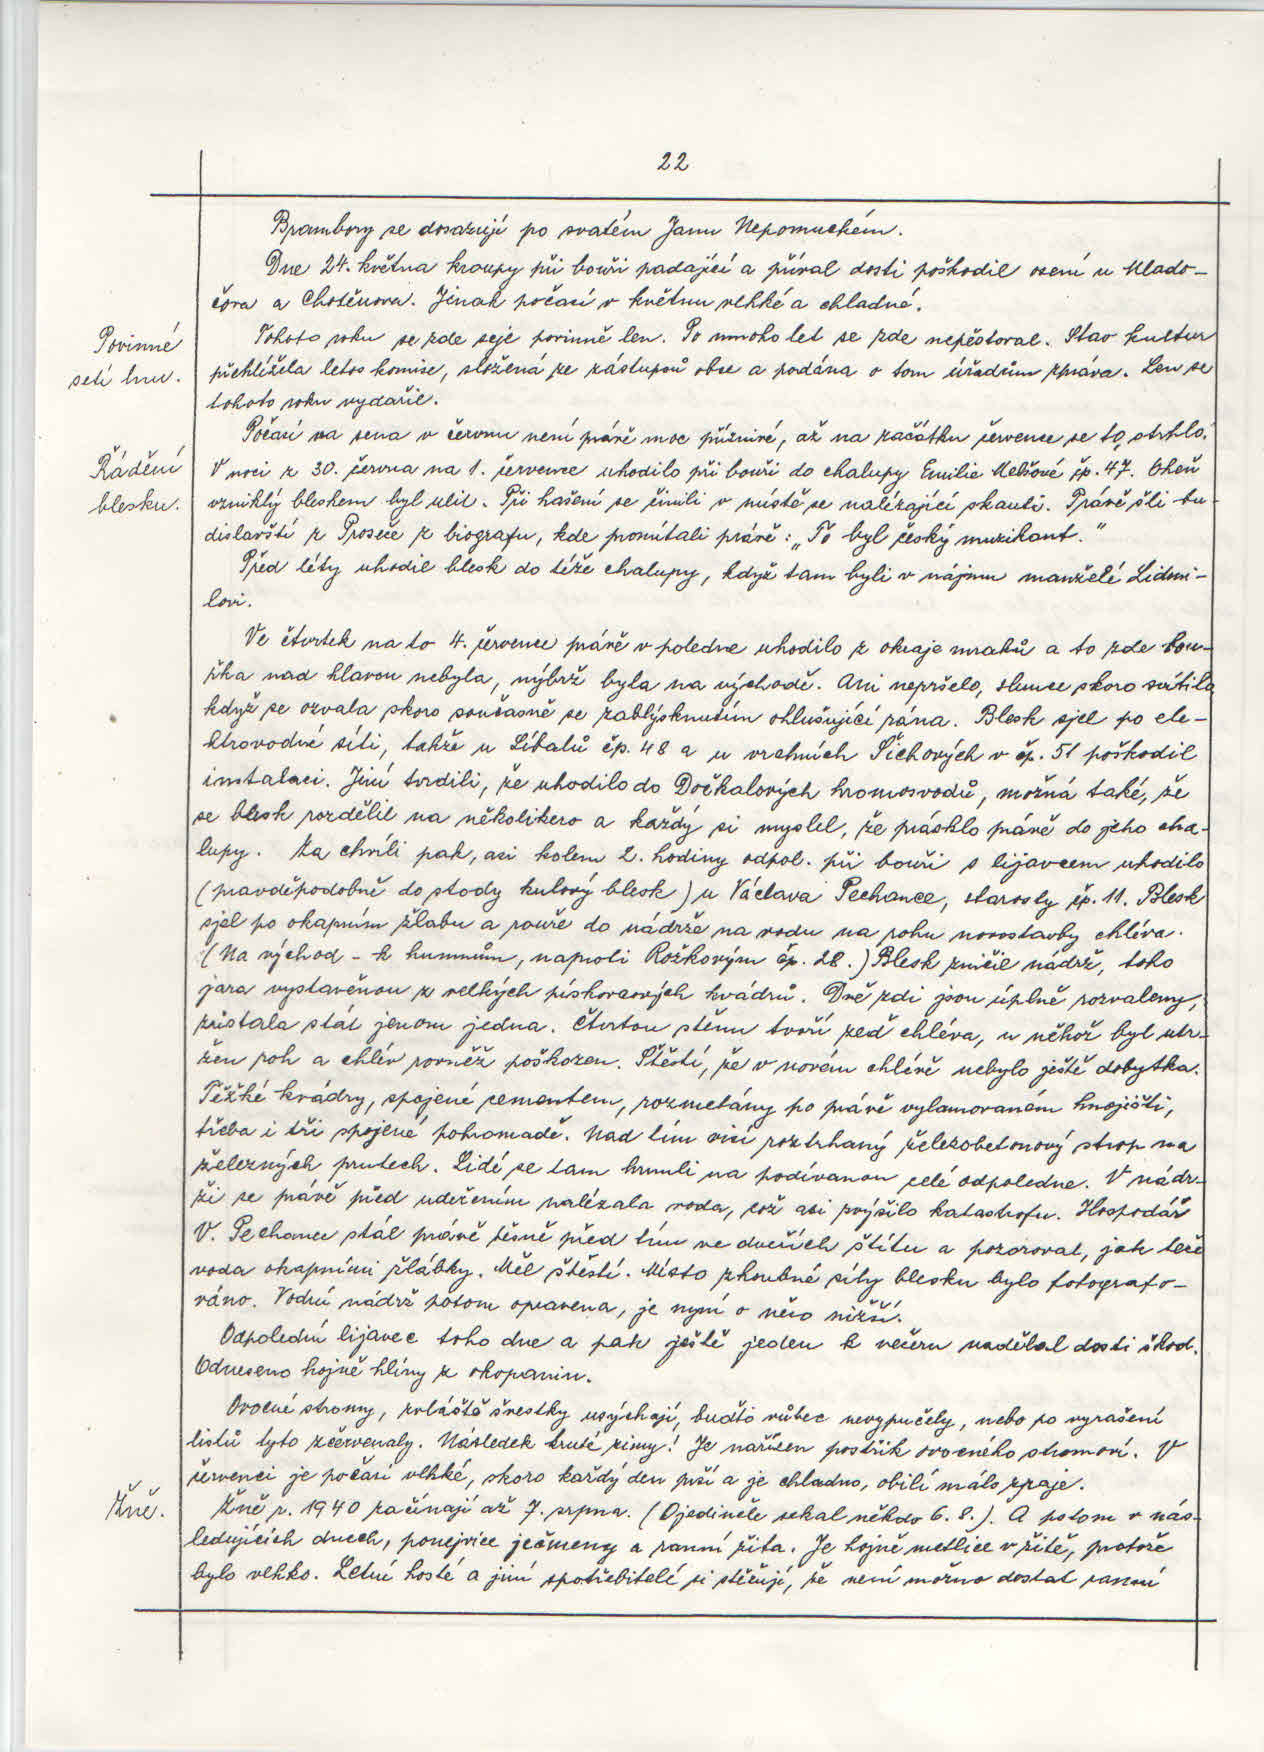 22
Brambory se dosazují po svatém Janu Nepomuckém.
Dne 24. května kroupy při bouři padající a příval dosti poškodil osení u Mlado-
čova a Chotěnova. Jinak počasí v květnu vlhké a chladné.
Povinné
setí lnu.
Tohoto roku se zde seje povinně len. Po mnoho let se zde nepěstoval. Stav kultur
přehlížela letos komise, složená ze zástupců obce a podána o tom úřadům zpráva. Len se
tohoto roku vydařil.
Počasí na sena v červnu není právě moc příznivé, až na začátku července se to strhlo.
Řádění
blesku.
V noci z 30. června na 1. července uhodilo při bouři do chalupy Emilie Melšové čp. 47. Oheň
vzniklý bleskem byl ulit. Při hašení se činili v místě se nalézající skauti. Právě šli bu-
dislavští z Proseče z biografu, kde promítali právě: „To byl český muzikant."
Před léty uhodil blesk do téže chalupy, když tam byli v nájmu manželé Lidmi-
lovi.
Ve čtvrtek na to 4. července právě v poledne uhodilo z okraje mraků a to zde bou-
řka nad hlavou nebyla, nýbrž byla na východě. Ani nepršelo, slunce skoro svítilo
když se ozvala skoro současně se zablýsknutím ohlušující rána. Blesk sjel po ele-
ktrovodné síti, takže u Líbalů čp. 48 a u vrchních Šichových v čp. 51 poškodil
instalaci. Jiní tvrdili, že uhodilo do Dočkalových hromosvodů, možná také, že
se blesk rozdělil na několikero a každý si myslel, že prásklo právě do jeho cha-
lupy. Za chvíli pak, asi kolem 2. hodiny odpol. při bouři s lijavcem uhodilo
(pravděpodobně do stody kulový blesk) u Václava Pechance, starosty čp. 11. Blesk
sjel po okapním žlabu a rouře do nádrže na vodu na rohu novostavby chléva.
(Na východ - k humnům, naproti Rožkovým čp. 28.) Blesk zničil nádrž, toho
jara vystavěnou z velkých pískovcových kvádrů. Dvě zdi jsou úplně rozvaleny,
zůstala stát jenom jedna. Čtvrtou stěnu tvoří zeď chléva, u něhož byl utr-
žen roh a chlév rovněž poškozen. Štěstí, že v novém chlévě nebylo ještě dobytka.
Těžké kvádry, spojené cementem, rozmetány po právě vylamovaném hnojišti,
třeba i tři spojené pohromadě. Nad tím visí roztrhaný železobetonový strop na
železných prutech. Lidé se tam hrnuli na podívanou celé odpoledne. V nádr-
ži se právě před udeřením nalézala voda, což asi zvýšilo katastrofu. Hospodář
V. Pechanec stál právě těsně před tím ve dveřích štítu a pozoroval, jak teče
voda okapními žlábky. Měl štěstí. Místo zhoubné síly blesku bylo fotografo-
váno. Vodní nádrž potom opravena, je nyní o něco nižší.
Odpolední lijavec toho dne a pak ještě jeden k večeru nadělal dosti škod.
Odneseno hojně hlíny z okopanin.
Ovocné stromy, zvláště švestky usýchají, buďto vůbec nevypučely, nebo po vyrašení
listů tyto zčervenaly. Následek kruté zimy! Je nařízen postřik ovocného stromoví. V
červenci je počasí vlhké, skoro každý den prší a je chladno, obilí málo zraje.
Žně.
Žně r. 1940 začínají až 7. srpna. (Ojediněle sekal někdo 6. 8.). A potom v nás-
ledujících dnech, ponejvíce ječmeny a ranní žita. Je hojně metlice v žitě, protože
bylo vlhko. Letní hosté a jiní spotřebitelé si stěžují, že není možno dostat ranní